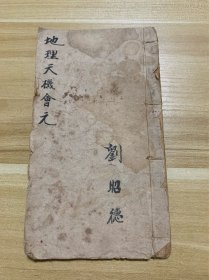 地理天機會元
劉昭德